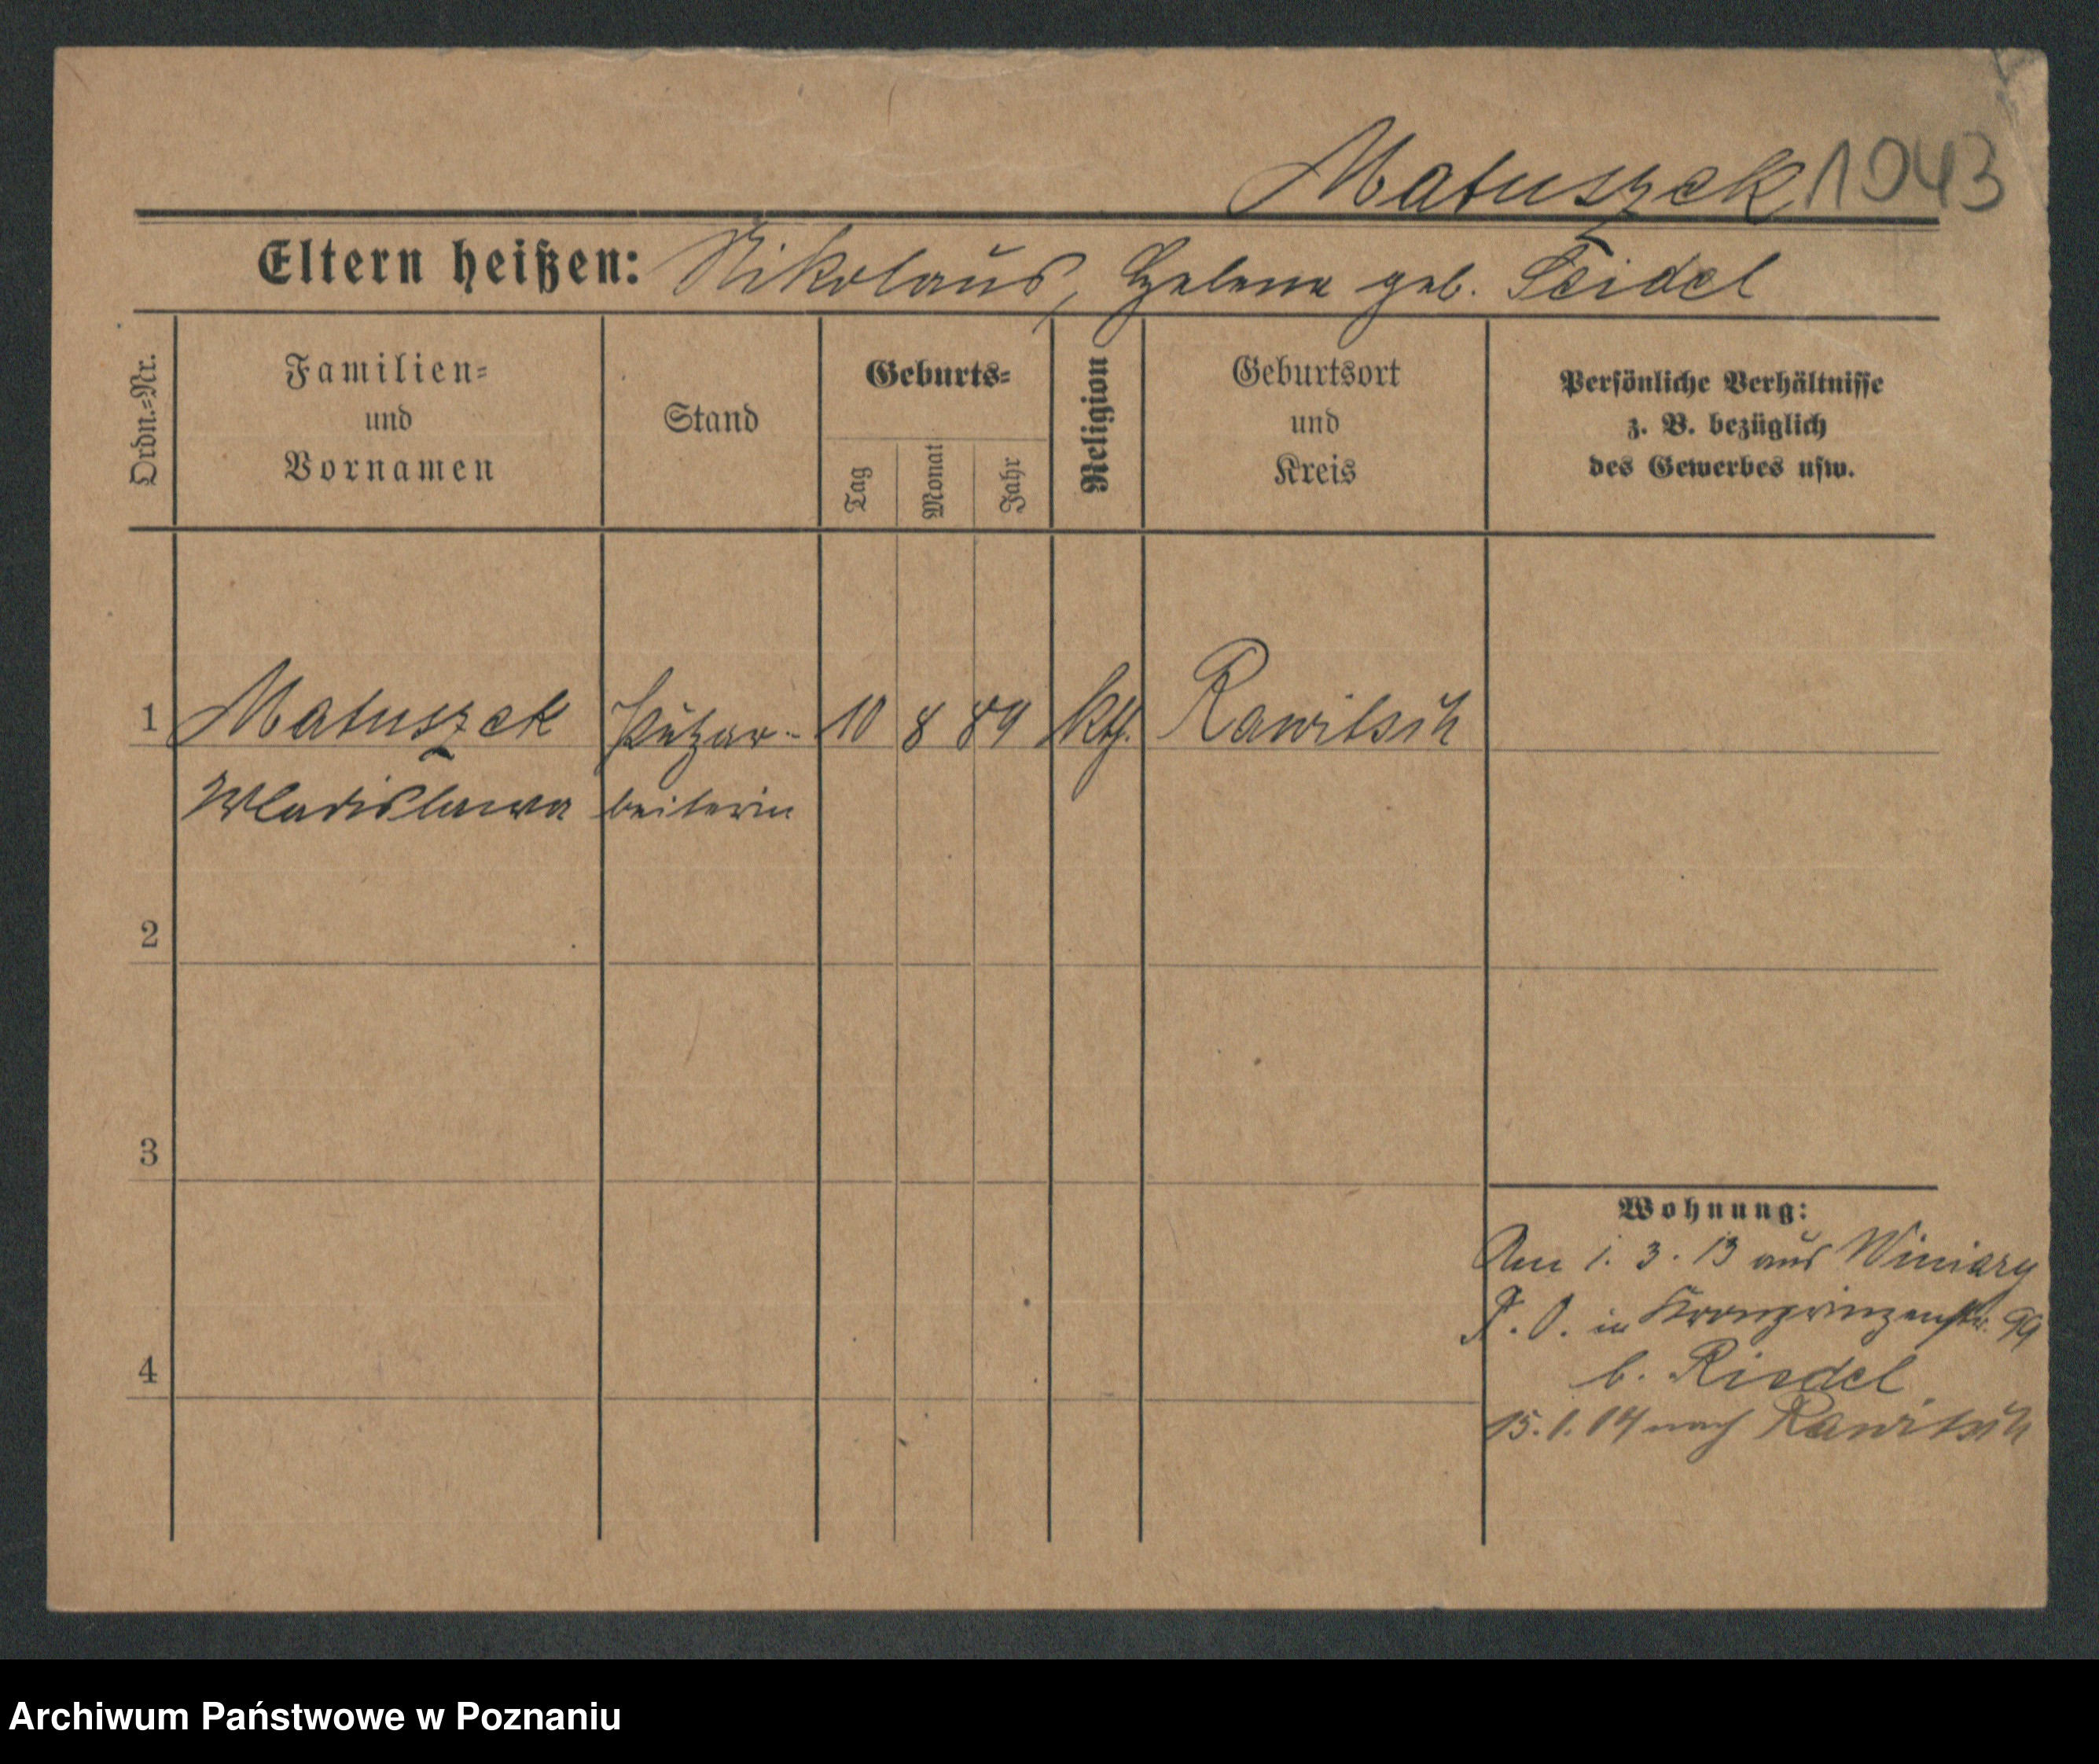 Matuszek 1043
Eltern heißen: Nikolaus, Helene geb. Seidel
Ordn.=Nr.
Familien=
und
Vornamen
Stand
Geburts=
Tag
Monat
Jahr
Religion
Geburtsort
und
Kreis
Persönliche Verhältnisse
z. B. bezüglich
des Gewerbes usw.
1 Matuszek Putzar- 10 8 89 kth. Rawitsch
Wladislawa beiterin
2
3
4
Wohnung:
Am 1. 3. 13 aus Winiary
P. O. in Kronprinzenstr. 99
b. Riedel
15.1.14 nach Rawitsch
Archiwum Państwowe w Poznaniu